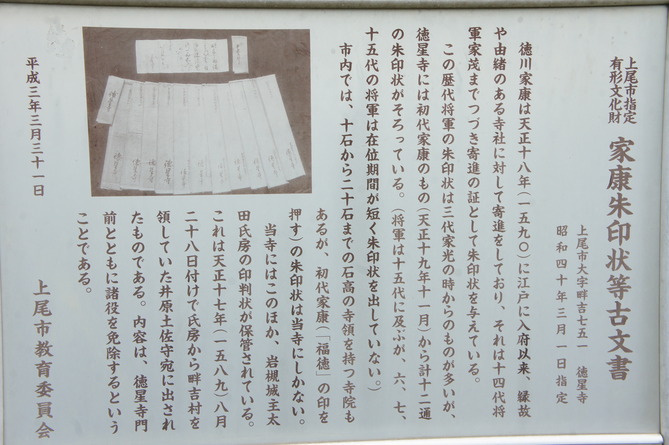 上尾市指定
有形文化財
家康朱印状等古文書
上尾市大字畔吉七五一 徳星寺
昭和四十年三月一日指定
徳川家康は天正十八年(一五九〇)に江戸に入府以来、縁故
や由緒のある寺社に対して寄進をしており、それは十四代将
軍家茂までつづき寄進の証として朱印状を与えている。
この歴代将軍の朱印状は三代家光の時からのものが多いが、
徳星寺には初代家康のもの(天正十九年十一月)から計十二通
の朱印状がそろっている。(将軍は十五代に及ぶが、六、七、
十五代の将軍は在位期間が短く朱印状を出していない。)
市内では、十石から二十石までの石高の寺領を持つ寺院も
あるが、初代家康(「福徳」の印を
押す)の朱印状は当寺にしかない。
当寺にはこのほか、岩槻城主太
田氏房の印判状が保管されている。
これは天正十七年(一五八九)八月
二十八日付けで氏房から畔吉村を
領していた井原土佐守宛に出され
たものである。内容は、徳星寺門
前とともに諸役を免除するという
ことである。
平成三年三月三十一日
上尾市教育委員会